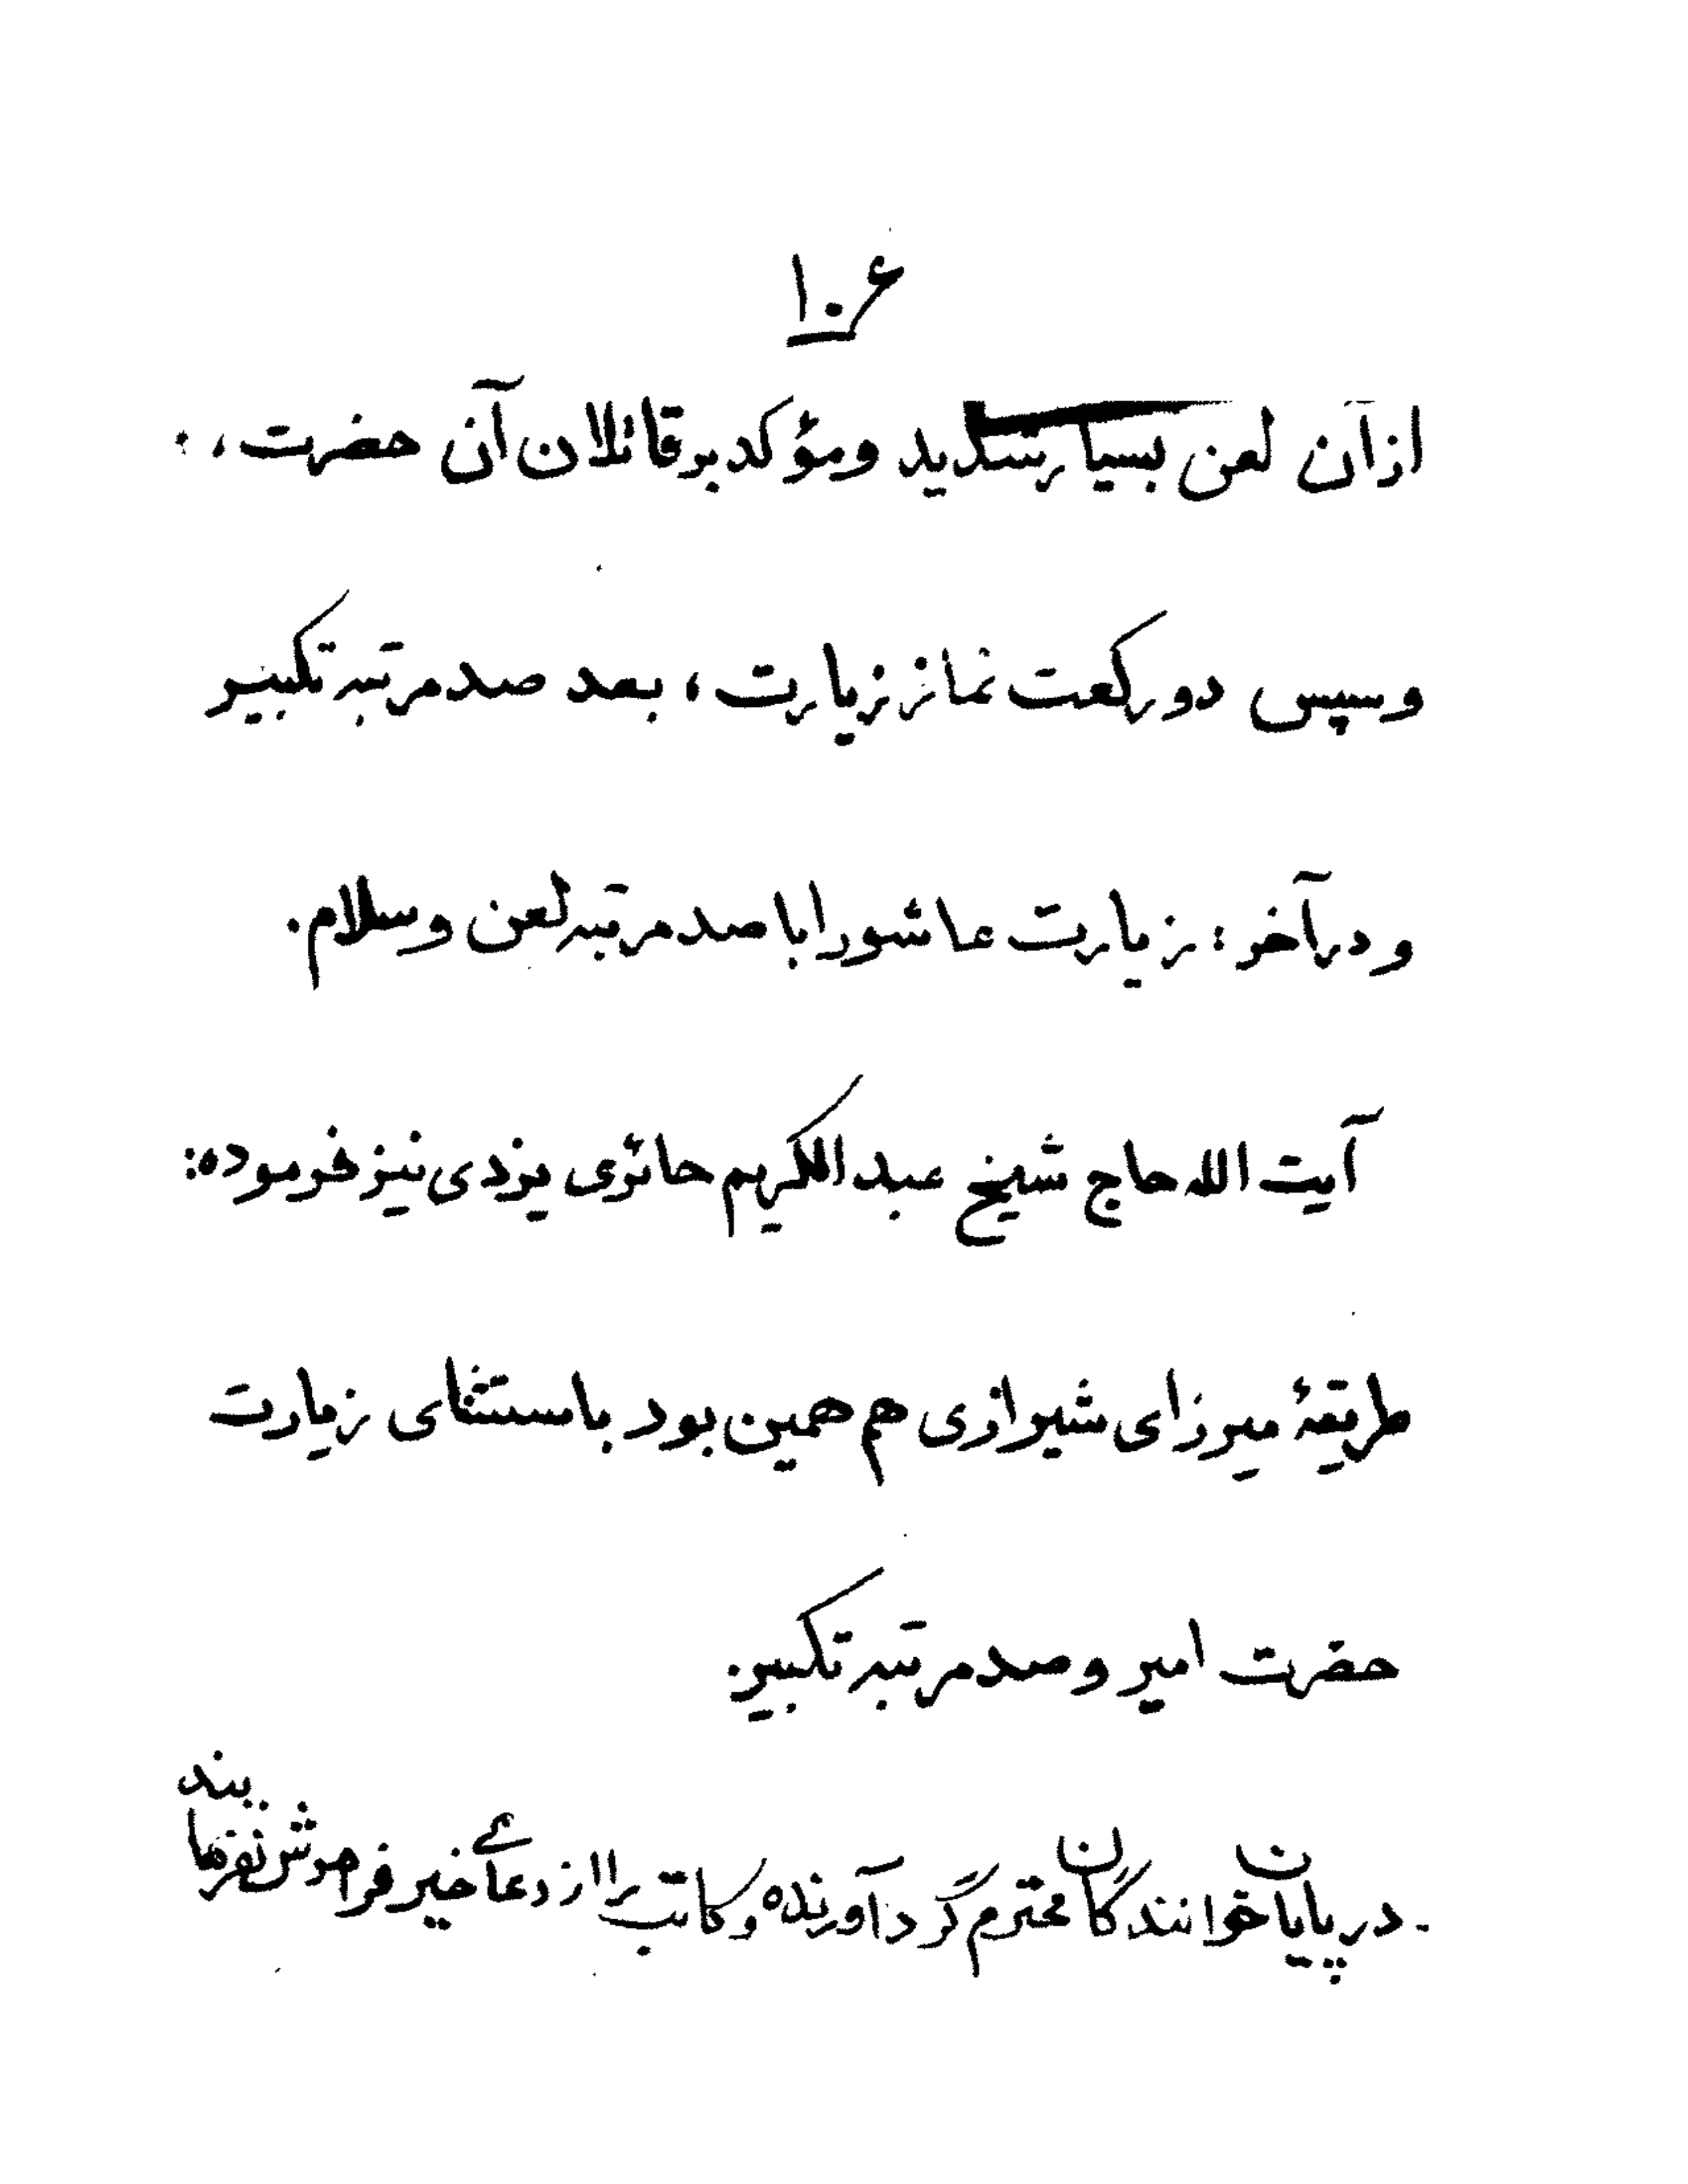 ۱۰۶
از آن لعن بسیار شدید و مؤکد بر قاتلان آن حضرت ،
و سپس دو رکعت نماز زیارت ، بعد صد مرتبه تکبیر
و در آخر : زیارت عاشورا با صد مرتبه لعن و سلام .
آیت الله حاج شیخ عبدالکریم حائری یزدی نیز فرموده :
طریقهٔ میرزای شیرازی هم همین بود باستثنای زیارت
حضرت امیر و صد مرتبه تکبیر .
در پایان خوانندگان محترم گردآورنده و کاتب را از دعای خیر فراموش نفرمایند